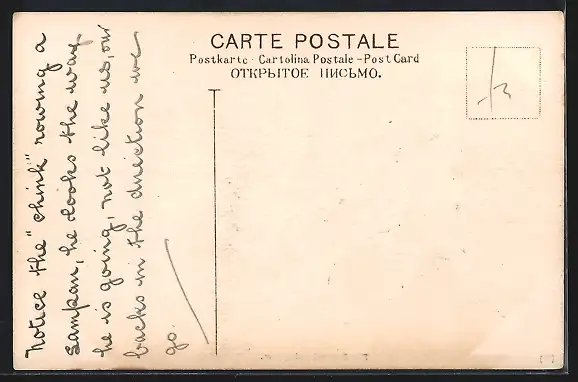 CARTE POSTALE
Postkarte - Cartolina Postale - Post Card
ОТКРЫТОЕ ПИСЬМО.
Notice the "chink" rowing a
sampan, he looks the way
he is going, not like us, our
backs in the direction we
go.